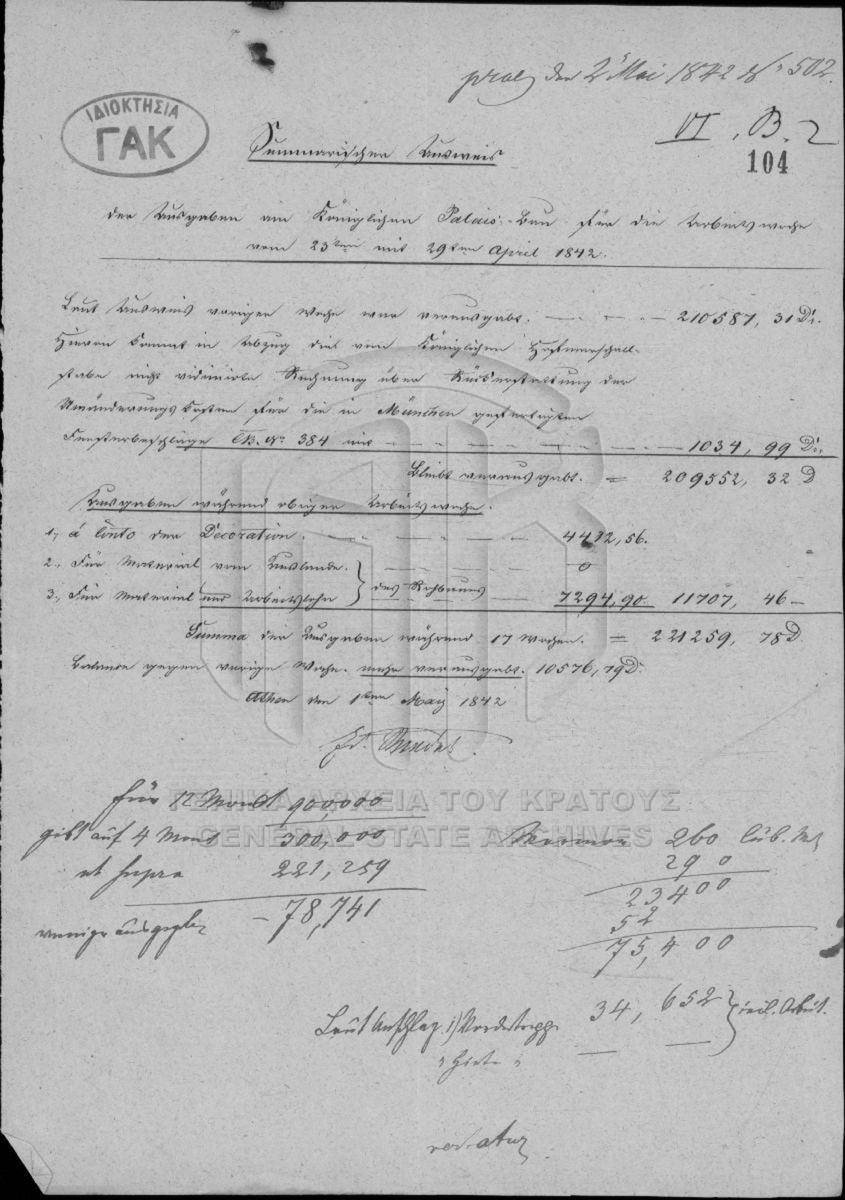 praes den 2t Mai 1842 No 502.
ΙΔΙΟΚΤΗΣΙΑ
ΓΑΚ
VI. B. 2
104
Summarischer Ausweis
der Ausgaben am Königlichen Palais-Bau für die Arbeitswoche
vom 23ten mit 29ten April 1842.
Laut Ausweis voriger Woche war verausgabt. 210587, 31 Dr.
Hievon kommt in Abzug die vom Königlichen Hofmarschall-
stabe nicht vidimirte Rechnung über Rückerstattung der
Umänderungs Kosten für die in München gefertigten
Fensterbeschläge B. No 384 mit 1034, 99 Dr.
Bleibt verausgabt. = 209552, 32 D
Ausgaben während obiger Arbeitswoche.
1., á Conto der Decoration. 4412,56.
2., Für Material vom Auslande. } des Rohbaues 0
3., Für Material und Arbeitslohn 7294,90. 11707, 46
Summa der Ausgaben während 17 Wochen. = 221259, 78 D.
Balance gegen vorige Woche. mehr verausgabt. 10576,79 D.
Athen den 1ten May 1842
für 12 Monat 900,000
gibt auf 4 Monat 300,000
ut supra 221,259
weniger ausgegeben - 78,741
260
290
23400
52
75,400
Laut Anschlag 1) 34, 652 } incl. Arbeit.
ΓΕΝΙΚΑ ΑΡΧΕΙΑ ΤΟΥ ΚΡΑΤΟΥΣ
GENERAL STATE ARCHIVES